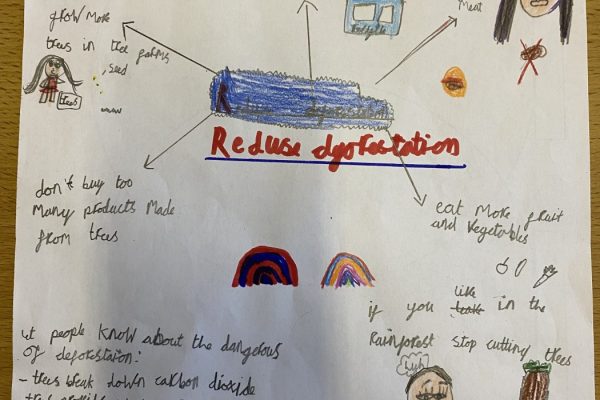 grow more
trees in the farms
seed
trees
Recycle
Meat
Reduse deforestation
don't buy too
many products made
from trees
eat more fruit
and vegetables
if you like in the
Rainforest stop cutting trees
huh
let people know about the dangerous
of deforestation:
- trees break down carbon dioxide